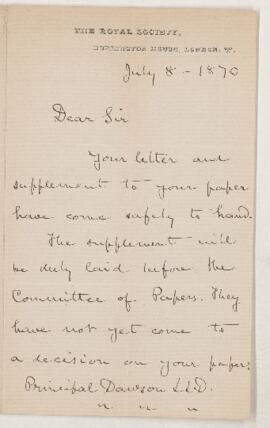 THE ROYAL SOCIETY,
BURLINGTON HOUSE, LONDON. W.
July 8 - 1870
Dear Sir
Your letter and
supplement to your paper
have come safely to hand.
The supplement will
be duly laid before the
Committee of Papers. They
have not yet come to
a decision on your paper;
Principal Dawson LLD.
" " "